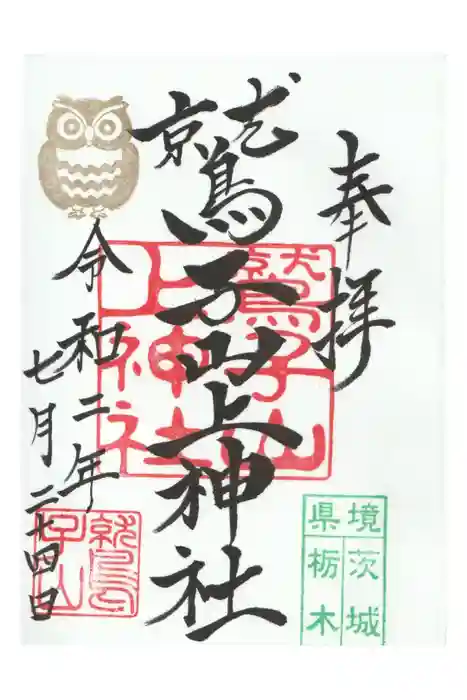 奉拝
鷲子山上神社
令和二年
七月二十四日
鷲子山
上神社
鷲
子山
境茨城
県栃木